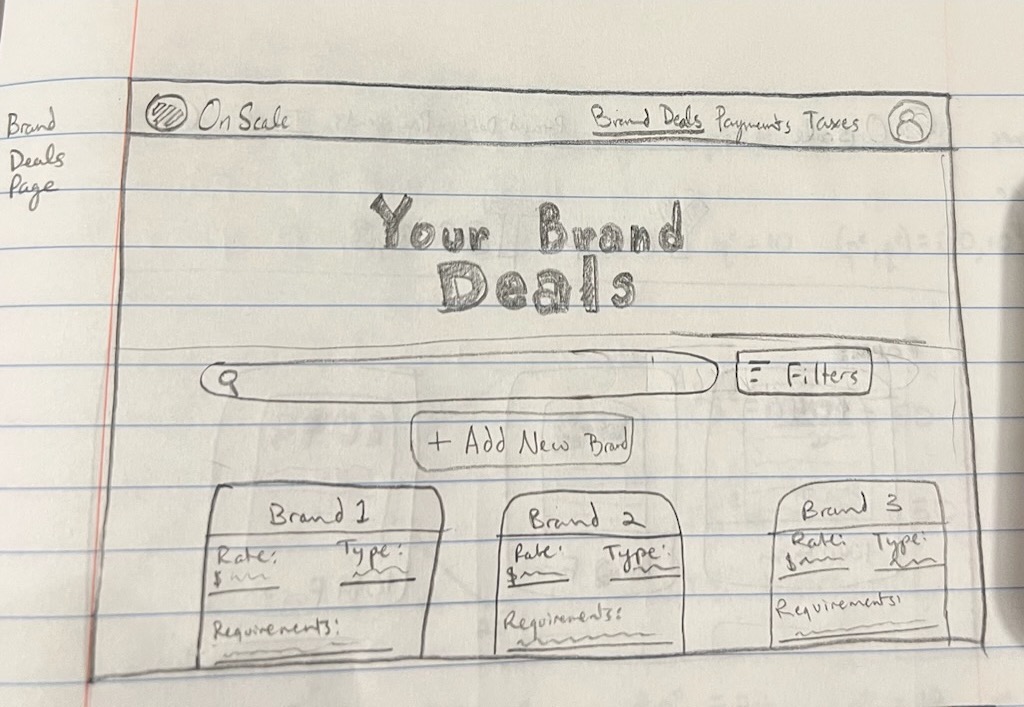 Brand
Deals
Page
OnScale
Brand Deals Payments Taxes
Your Brand
Deals
Filters
+ Add New Brand
Brand 1
Rate: Type:
$
Requirements:
Brand 2
Rate: Type:
$
Requirements:
Brand 3
Rate: Type:
$
Requirements: